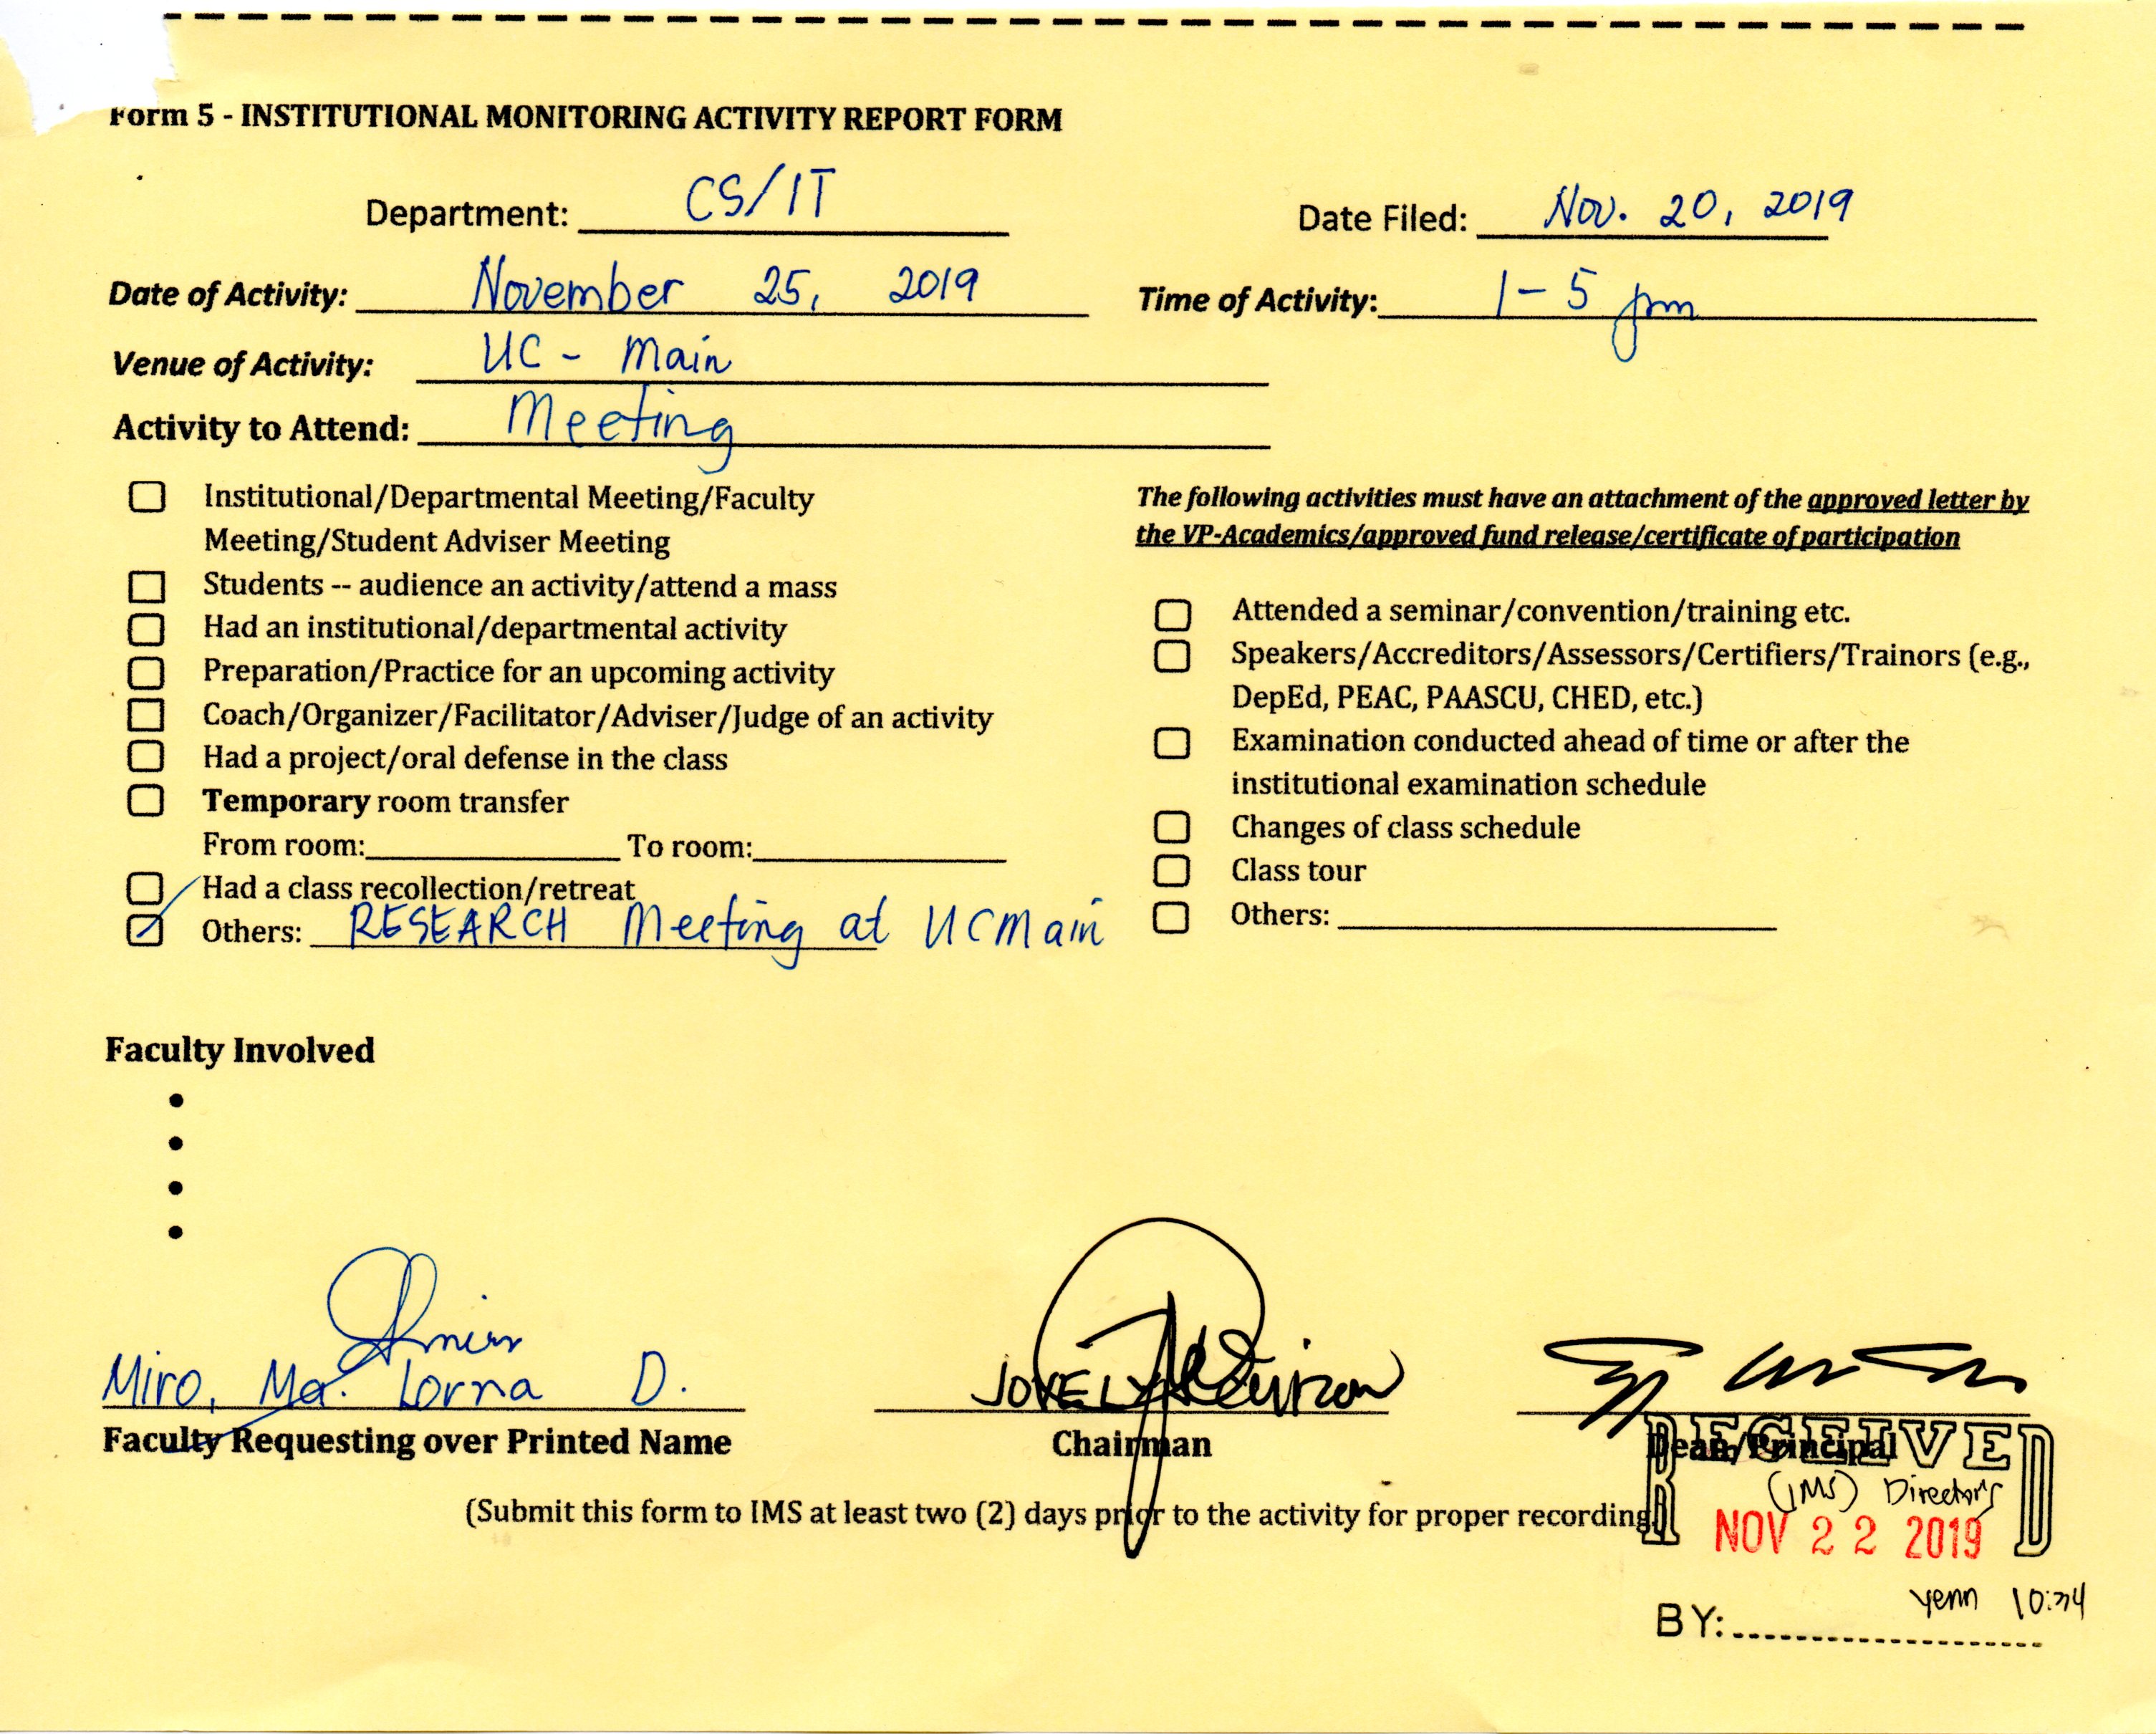 Form 5 - INSTITUTIONAL MONITORING ACTIVITY REPORT FORM
Department: CS/IT
Date Filed: Nov. 20, 2019
Date of Activity: November 25, 2019
Time of Activity: 1-5 pm
Venue of Activity: UC - Main
Activity to Attend: Meeting
Institutional/Departmental Meeting/Faculty
Meeting/Student Adviser Meeting
Students -- audience an activity/attend a mass
Had an institutional/departmental activity
Preparation/Practice for an upcoming activity
Coach/Organizer/Facilitator/Adviser/Judge of an activity
Had a project/oral defense in the class
Temporary room transfer
From room: To room:
Had a class recollection/retreat
Others: RESEARCH Meeting at UC Main
The following activities must have an attachment of the approved letter by
the VP-Academics/approved fund release/certificate of participation
Attended a seminar/convention/training etc.
Speakers/Accreditors/Assessors/Certifiers/Trainors (e.g.,
DepEd, PEAC, PAASCU, CHED, etc.)
Examination conducted ahead of time or after the
institutional examination schedule
Changes of class schedule
Class tour
Others:
Faculty Involved
Miro, Ma. Lorna D.
Faculty Requesting over Printed Name
Chairman
Dean/Principal
RECEIVED
(IMS) Director's
(Submit this form to IMS at least two (2) days prior to the activity for proper recording
NOV 22 2019
yenn
BY: